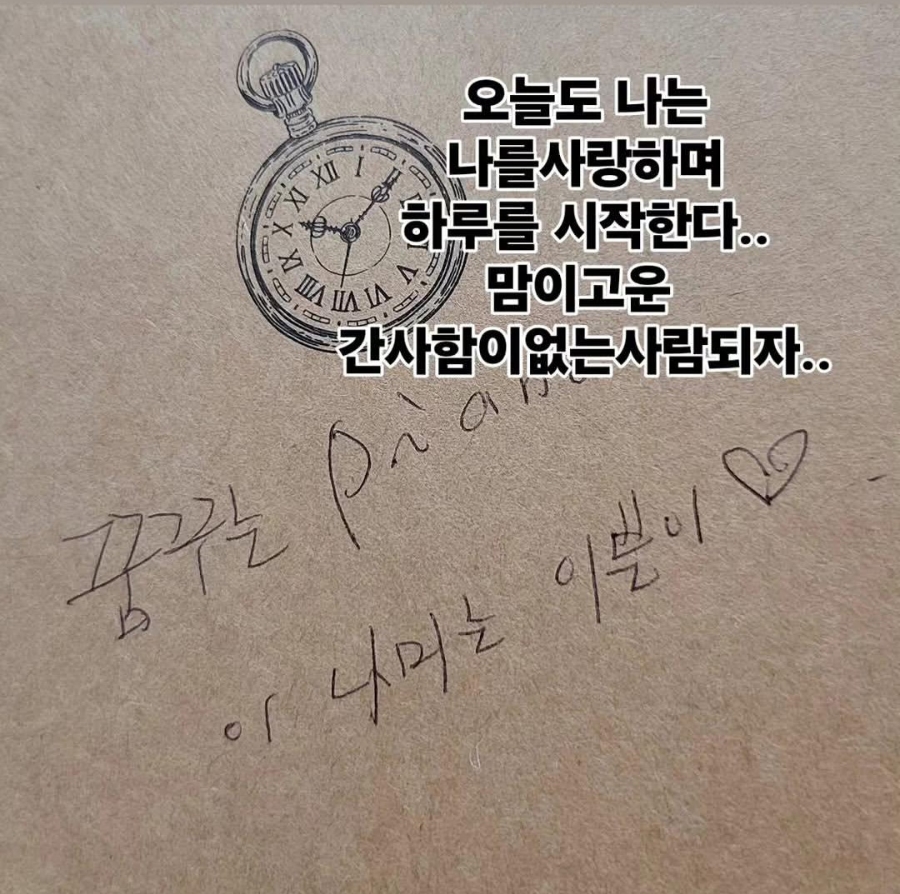 오늘도 나는
나를사랑하며
하루를 시작한다..
맘이고운
간사함이없는사람되자..
XII I
XI
X
IX
VIII VII VI V
꿈꾸는 piano
이 나미는 이쁜이